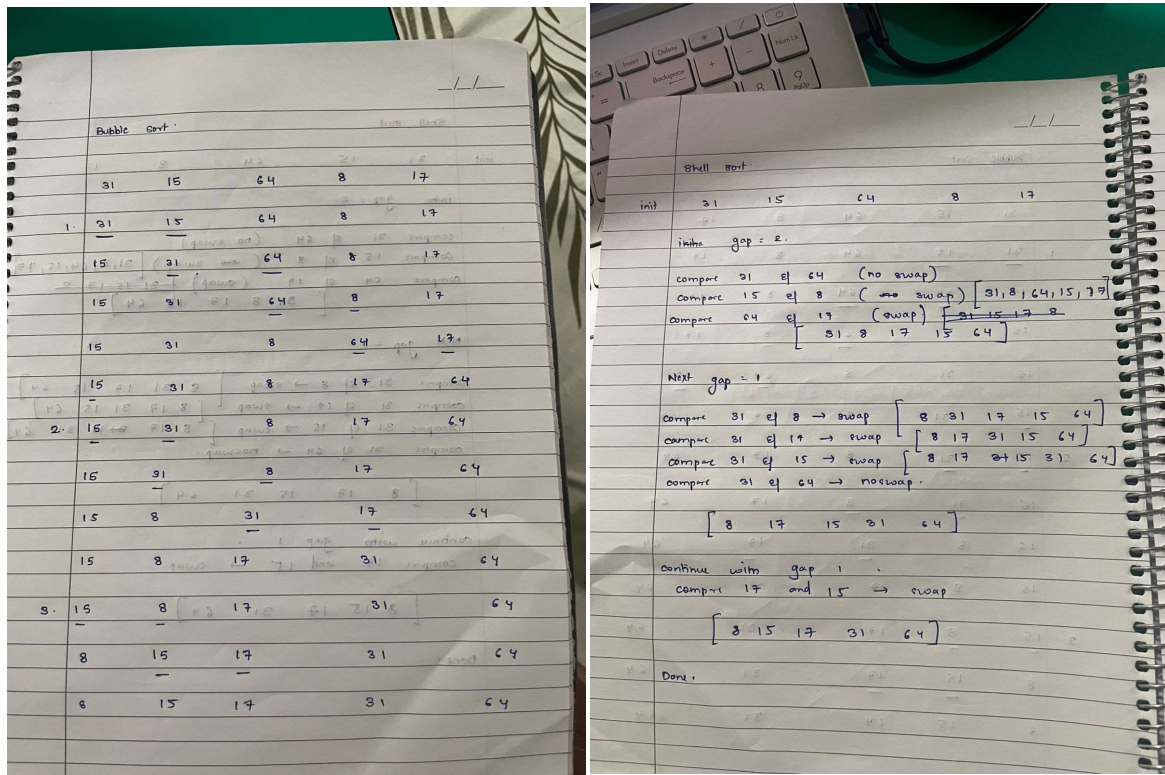 _/_/_
Bubble sort.
31 15 64 8 17
1. 31 15 64 8 17
15 31 64 8 17
15 31 64 8 17
15 31 8 64 17
15 31 8 17 64
2. 15 31 8 17 64
15 31 8 17 64
15 8 31 17 64
15 8 17 31 64
3. 15 8 17 31 64
8 15 17 31 64
8 15 17 31 64
Insert
Delete
*
/
Backspace
+
-
Num Lk
=
8
9
PgUp
_/_/_
Shell sort.
init 31 15 64 8 17
gap = 2.
compare 31 & 64 (no swap)
compare 15 & 8 (swap) [31, 8, 64, 15, 17]
compare 64 & 17 (swap) [31 15 17 8
[31 8 17 15 64]
Next gap = 1
compare 31 & 8 → swap [8 31 17 15 64]
compare 31 & 17 → swap [8 17 31 15 64]
compare 31 & 15 → swap [8 17 31 15 31 64]
compare 31 & 64 → noswap.
[8 17 15 31 64]
continue with gap 1.
compare 17 and 15 → swap
[8 15 17 31 64]
Done.